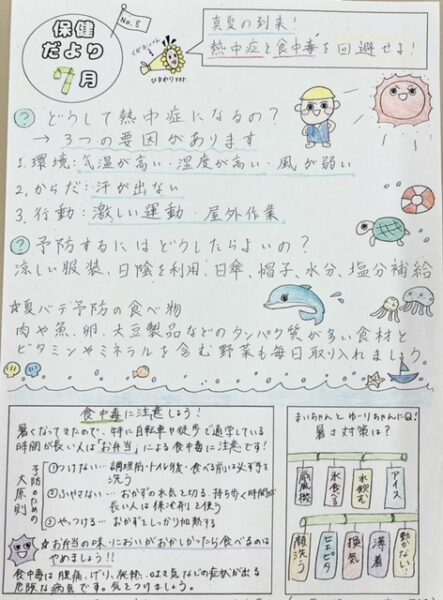 No.8
保健
だより
7月
ひまわりster
真夏の到来！
熱中症と食中毒を回避せよ！
? どうして熱中症になるの？
→ 3つの要因があります
1.環境：気温が高い・湿度が高い・風が弱い
2.からだ：汗が出ない
3.行動：激しい運動・屋外作業
? 予防するにはどうしたらよいの？
涼しい服装、日陰を利用、日傘、帽子、水分、塩分補給
☆夏バテ予防の食べ物
肉や魚、卵、大豆製品などのタンパク質が多い食材と
ビタミンやミネラルを含む野菜も毎日取り入れましょう。
食中毒に注意しよう！
暑くなってきたので、特に自転車や徒歩で通学している
時間が長い人は「お弁当」による食中毒に注意です！
予防のための
大原則
①つけない…調理前・トイレ後・食べる前は必ず手を
洗う
②ふやさない…おかずの水気を切る、持ち歩く時間が
長い人は保冷剤も使う
③やっつける…おかずをしっかり加熱する
☆お弁当の味・においがおかしかったら食べるのは
やめましょう!!
食中毒は腹痛、げり、発熱、はき気などの症状が出る
危険な病気です。気をつけましょう。
まいちゃんとゆーりちゃんにQ!
暑さ対策は？
扇風機
氷食べる
水飲む
アイス
顔洗う
ヒエピタ
換気
薄着
動かない！